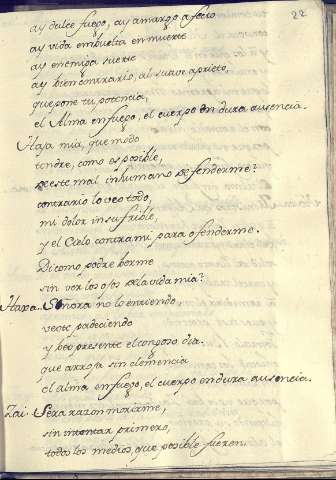 22
ay dulce fuego, ay amargo afecto
ay vida embuelta en muerte
ay enemiga suerte
ay bien contrario, al suave aprieto,
que pone tu potencia,
el Alma en fuego, el cuerpo en dura ausencia.
Haja mia, que modo
tendre, como es posible,
de este mal inhumano defenderme?
contrario lo veo todo,
mi dolor insufrible,
y el Cielo contra mi para ofenderme.
Di como podre verme
sin ver los ojos de la vida mia?
Haxa. Señora no lo entiendo,
veote padeciendo
y veo presente el congojo dia.
que arroja sin clemencia
el alma en fuego, el cuerpo en dura ausencia.
Zai. Sera razon morirme,
sin intentar primero,
todos los medios que posible fueren.